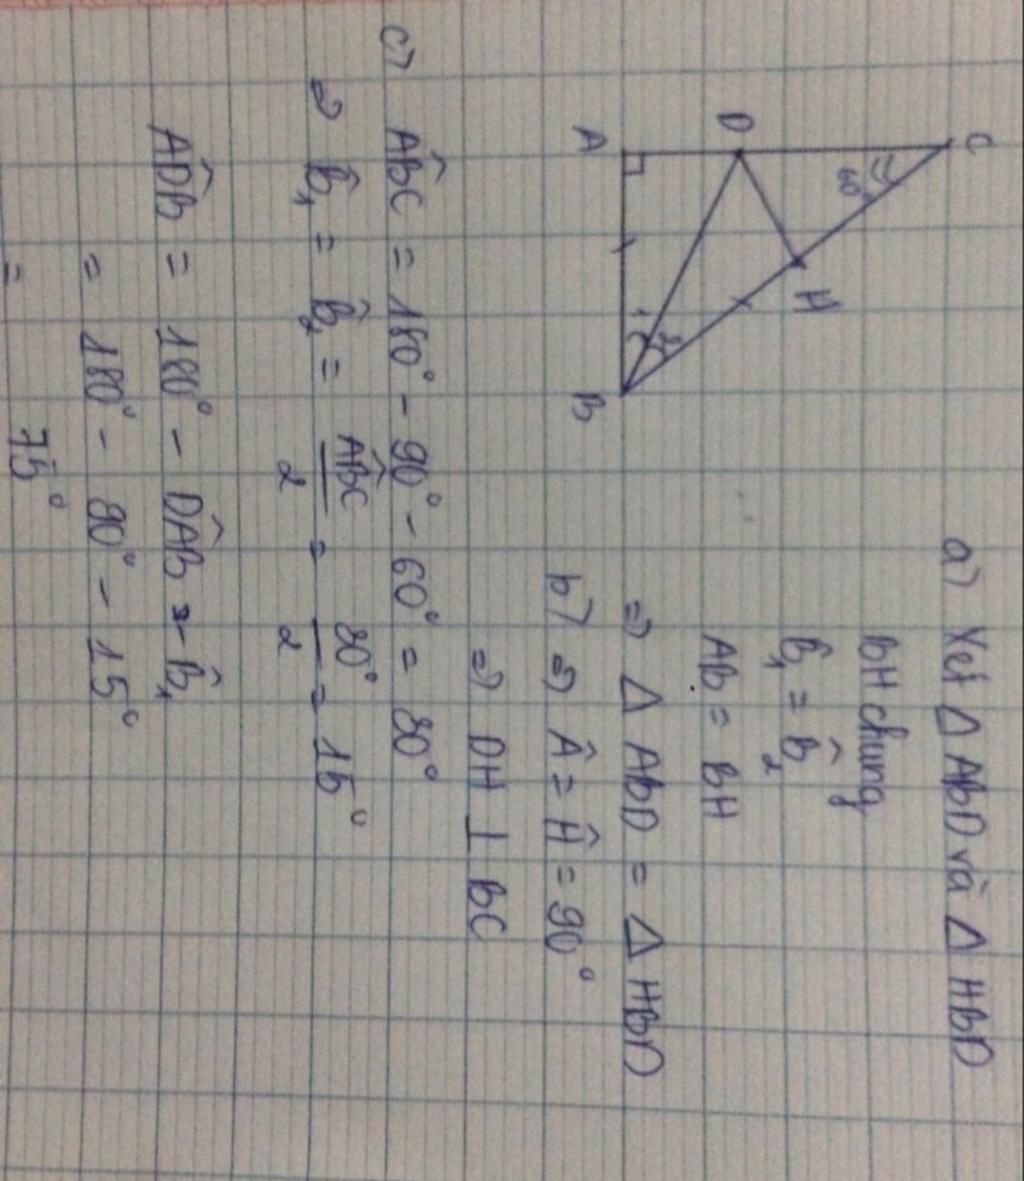 C
60°
H
D
1
2
A
B
a) Xét Δ ABD và Δ HBD
BH chung
B̂₁ = B̂₂
AB = BH
=> Δ ABD = Δ HBD
b) => Â = Ĥ = 90°
=> DH ⊥ BC
c) ABC̑ = 180° - 90° - 60° = 30°
=> B̂₁ = B̂₂ = ABC̑/2 = 30°/2 = 15°
ADB̑ = 180° - DAB̑ - B̂₁
= 180° - 90° - 15°
= 75°